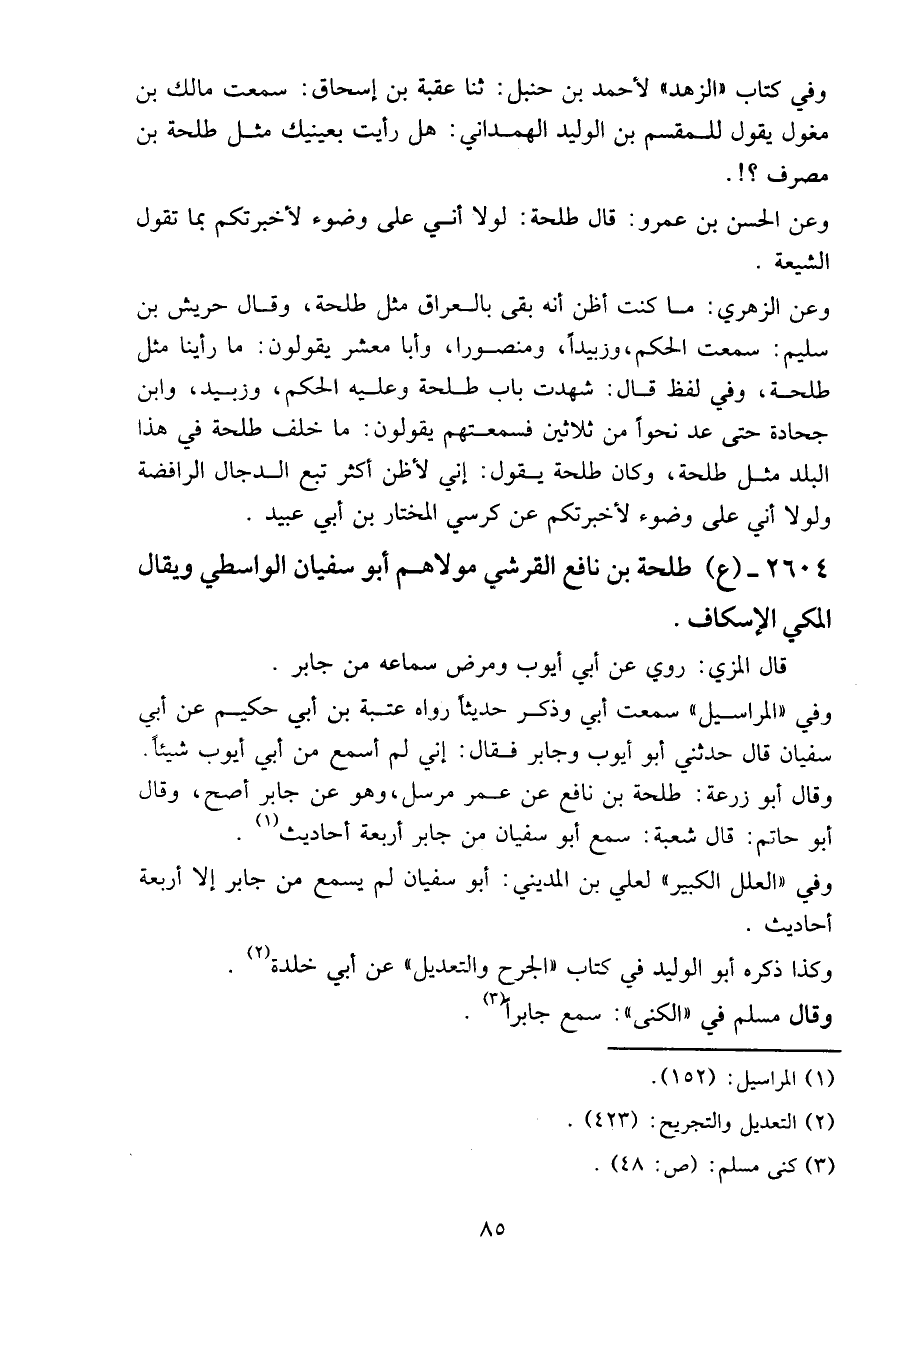 وفي كتاب «الزهد» لأحمد بن حنبل: ثنا عقبة بن إسحاق: سمعت مالك بن
مغول يقول للمقسم بن الوليد الهمداني: هل رأيت بعينيك مثل طلحة بن
مصرف ؟!.
وعن الحسن بن عمرو: قال طلحة: لولا أني على وضوء لأخبرتكم بما تقول
الشيعة .
وعن الزهري: ما كنت أظن أنه بقى بالعراق مثل طلحة، وقال حريش بن
سليم: سمعت الحكم، وزبيداً، ومنصورا، وأبا معشر يقولون: ما رأينا مثل
طلحة، وفي لفظ قال: شهدت باب طلحة وعليه الحكم، وزبيد، وابن
جحادة حتى عد نحواً من ثلاثين فسمعتهم يقولون: ما خلف طلحة في هذا
البلد مثل طلحة، وكان طلحة يقول: إني لأظن أكثر تبع الدجال الرافضة
ولولا أني على وضوء لأخبرتكم عن كرسي المختار بن أبي عبيد .
٢٦٠٤ ـ (ع) طلحة بن نافع القرشي مولاهم أبو سفيان الواسطي ويقال
المكي الإسكاف .
قال المزي: روي عن أبي أيوب ومرض سماعه من جابر .
وفي «المراسيل» سمعت أبي وذكر حديثاً رواه عتبة بن أبي حكيم عن أبي
سفيان قال حدثني أبو أيوب وجابر فقال: إني لم أسمع من أبي أيوب شيئاً.
وقال أبو زرعة: طلحة بن نافع عن عمر مرسل، وهو عن جابر أصح، وقال
أبو حاتم: قال شعبة: سمع أبو سفيان من جابر أربعة أحاديث(١) .
وفي «العلل الكبير» لعلي بن المديني: أبو سفيان لم يسمع من جابر إلا أربعة
أحاديث .
وكذا ذكره أبو الوليد في كتاب «الجرح والتعديل» عن أبي خلدة(٢) .
وقال مسلم في «الكنى»: سمع جابراً(٣) .
(١) المراسيل: (١٥٢).
(٢) التعديل والتجريح: (٤٢٣) .
(٣) كنى مسلم: (ص: ٤٨) .
٨٥